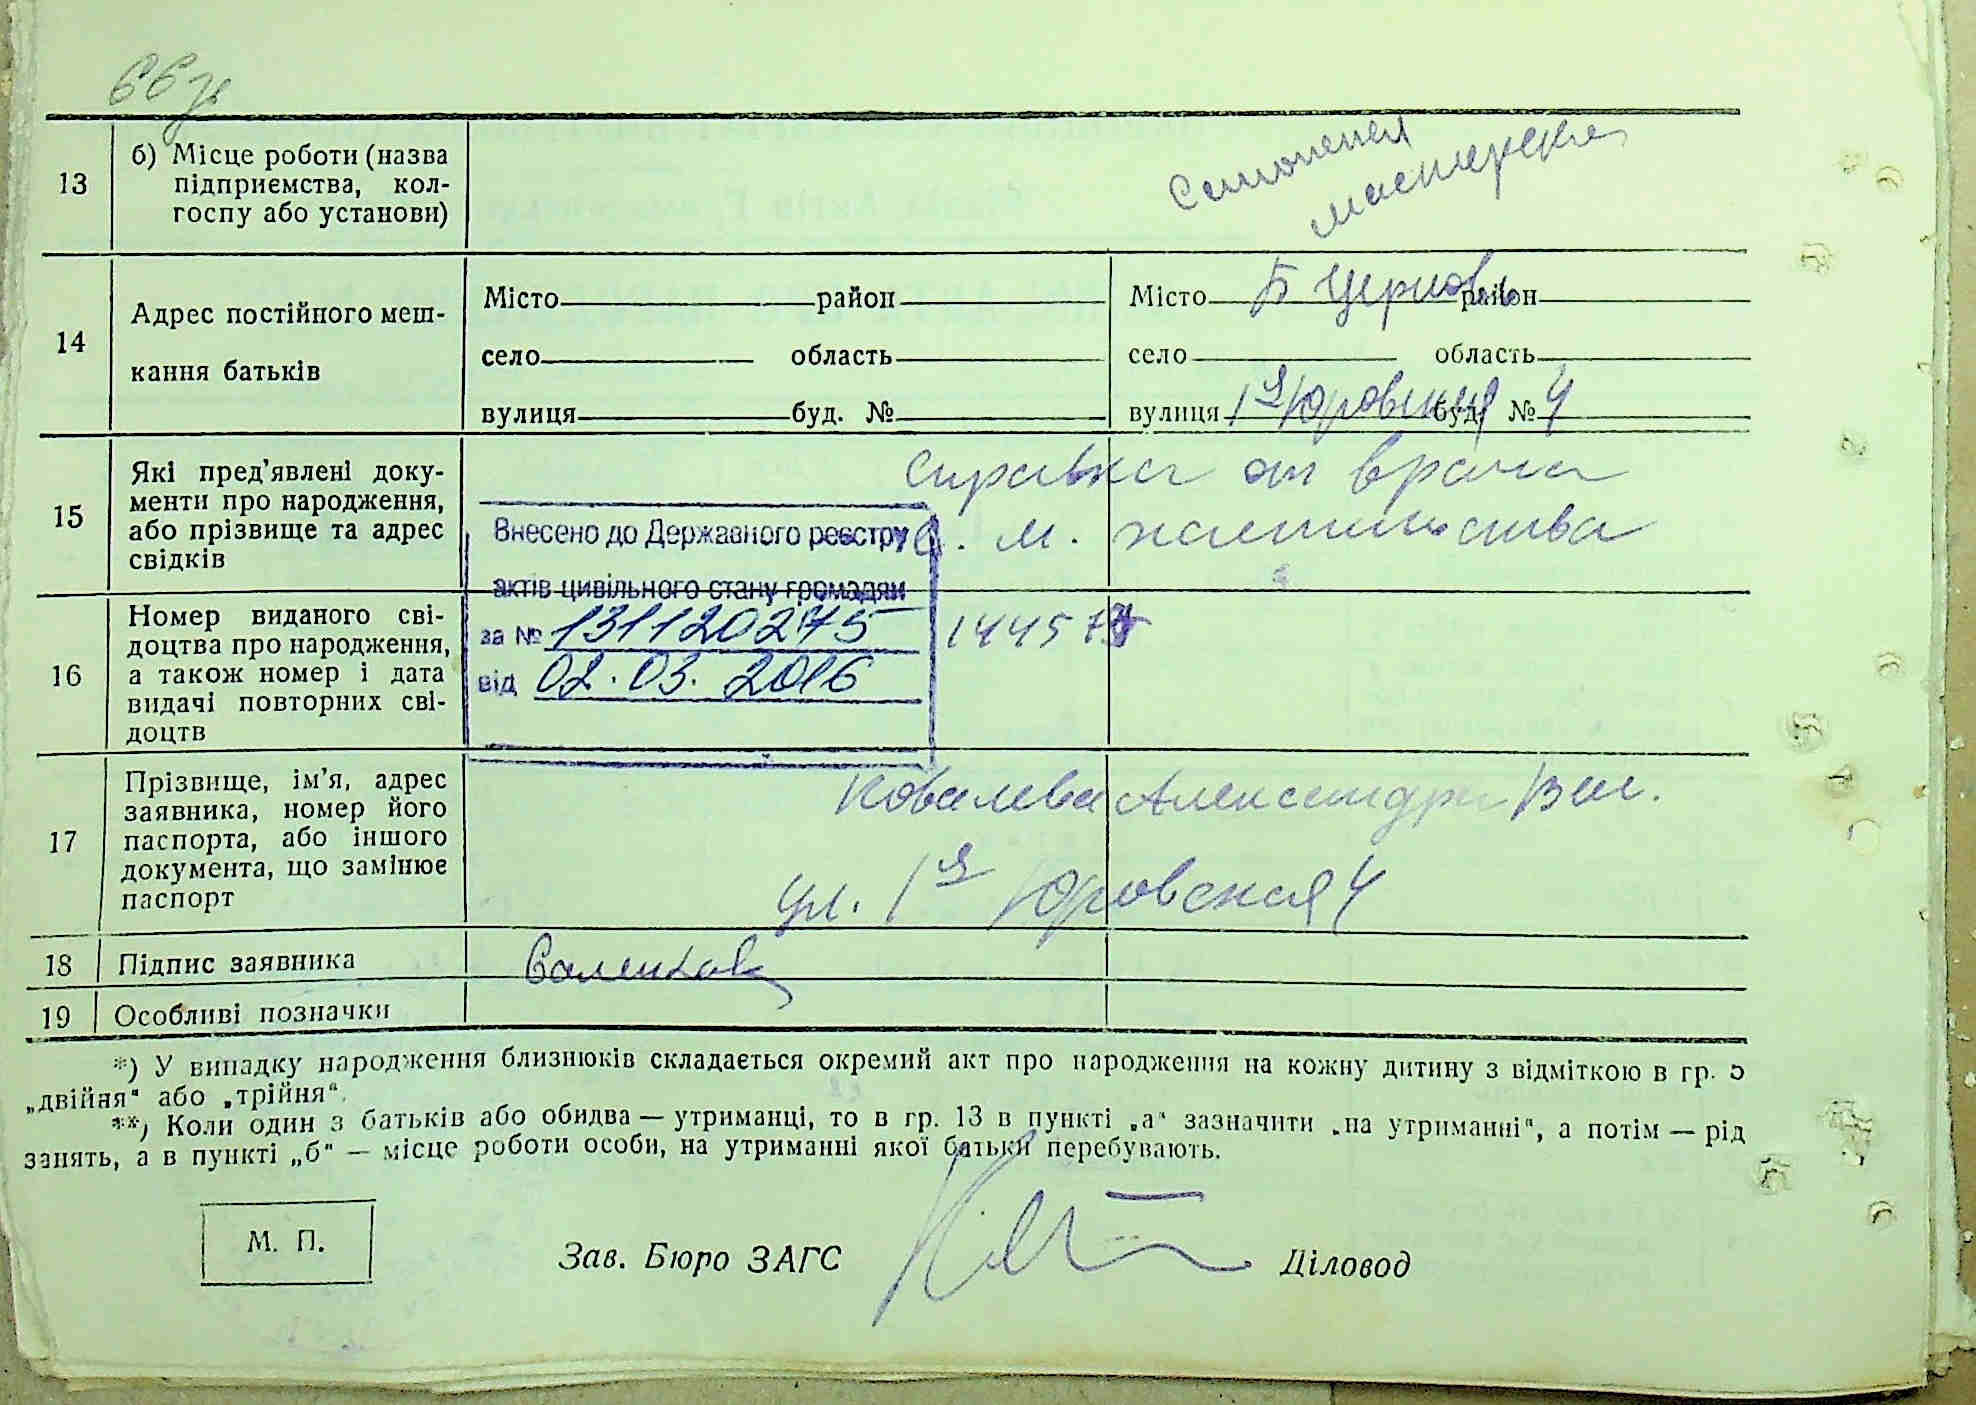 66
13
б) Місце роботи (назва
підприємства, кол-
госпу або установи)
мастерская
14
Адрес постійного меш-
кання батьків
Місто район
село область
вулиця буд. №
Місто Б Церковь район
село область
вулиця 1я Юровская буд. № 4
15
Які пред’явлені доку-
менти про народження,
або прізвище та адрес
свідків
справка от врача
о. м. жительства
Внесено до Державного реєстру
актів цивільного стану громадян
за № 131120275
від 02.03.2016
16
Номер виданого сві-
доцтва про народження,
а також номер і дата
видачі повторних сві-
доцтв
17
Прізвище, ім’я, адрес
заявника, номер його
паспорта, або іншого
документа, що замінює
паспорт
Ковалева Александра Вас.
ул. 1я Юровская 4
18
Підпис заявника
19
Особливі позначки
*) У випадку народження близнюків складається окремий акт про народження на кожну дитину з відміткою в гр. 5
„двійня“ або „трійня“.
**) Коли один з батьків або обидва — утриманці, то в гр. 13 в пункті „а“ зазначити „на утриманні“, а потім — рід
занять, а в пункті „б“ — місце роботи особи, на утриманні якої батьки перебувають.
М. П.
Зав. Бюро ЗАГС
Діловод